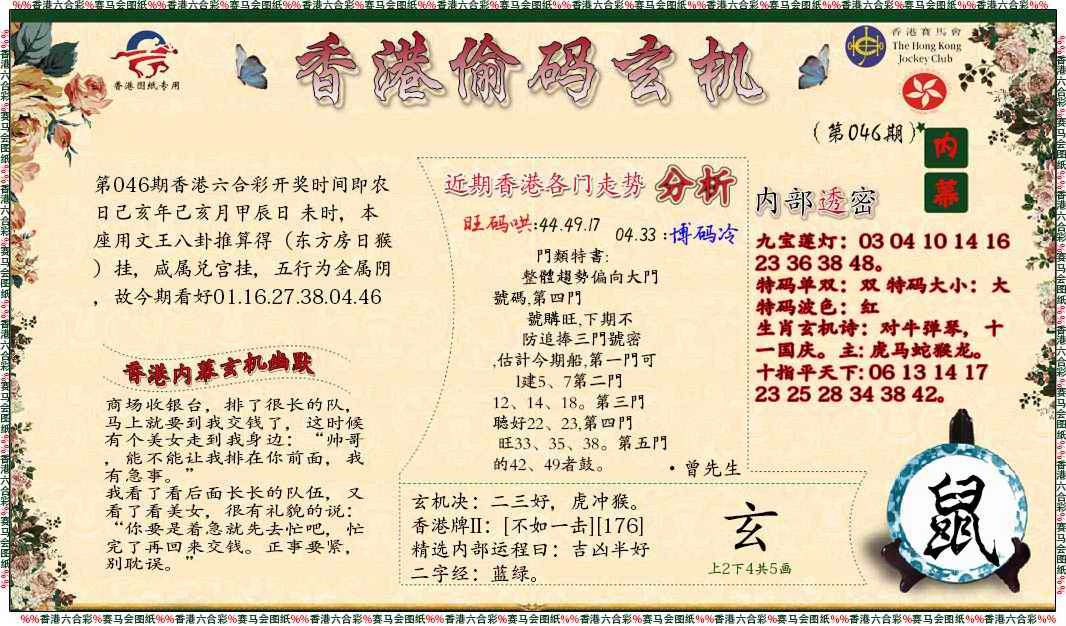 %%香港六合彩%赛马会图纸%%香港六合彩%赛马会图纸%%香港六合彩%赛马会图纸%%香港六合彩%赛马会图纸%%香港六合彩%赛马会图纸%%香港六合彩%赛马会图纸%%香港六合彩%%
香港图纸专用
香港偷码玄机
香港賽馬會
The Hong Kong
Jockey Club
(第046期)
内
幕
第046期香港六合彩开奖时间即农
日己亥年己亥月甲辰日 未时，本
座用文王八卦推算得（东方房日猴
）挂，咸属兑宫挂，五行为金属阴
，故今期看好01.16.27.38.04.46
香港内幕玄机幽默
商场收银台，排了很长的队，
马上就要到我交钱了，这时候
有个美女走到我身边：“帅哥
，能不能让我排在你前面，我
有急事。”
我看了看后面长长的队伍，又
看了看美女，很有礼貌的说：
“你要是着急就先去忙吧，忙
完了再回来交钱。正事要紧，
别耽误。”
近期香港各门走势 分析
旺码哄:44.49.17
04.33 :博码冷
門類特書:
整體趨勢偏向大門
號碼,第四門
號購旺,下期不
防追捧三門號密
,估計今期船,第一門可
1建5、7第二門
12、14、18。第三門
聽好22、23,第四門
旺33、35、38。第五門
的42、49者鼓。
·曾先生
内部透密
九宝莲灯：03 04 10 14 16
23 36 38 48。
特码单双：双 特码大小：大
特码波色：红
生肖玄机诗：对牛弹琴，十
一国庆。主: 虎马蛇猴龙。
十指平天下: 06 13 14 17
23 25 28 34 38 42。
玄机决：二三好，虎冲猴。
香港牌II：[不如一击][176]
精选内部运程曰：吉凶半好
二字经：蓝绿。
玄
上2下4共5画
鼠
%%香港六合彩%赛马会图纸%%香港六合彩%赛马会图纸%%香港六合彩%赛马会图纸%%香港六合彩%赛马会图纸%%香港六合彩%赛马会图纸%%香港六合彩%赛马会图纸%%香港六合彩%%